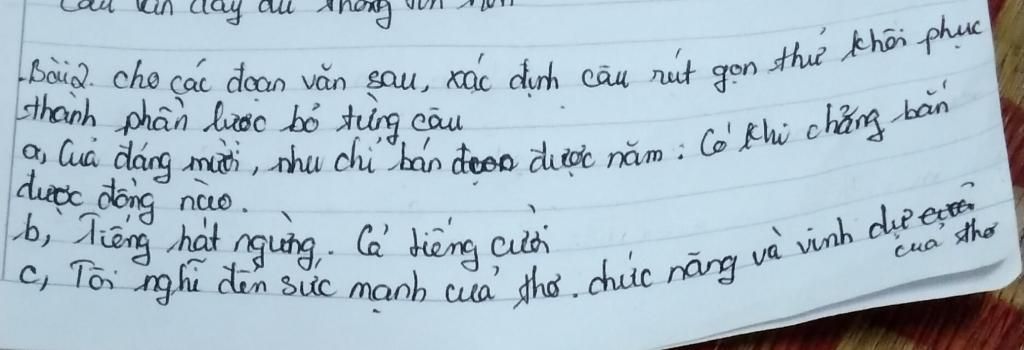 câu
đầy đủ không
Bài 2. cho các đoạn văn sau, xác định câu rút gọn thử khôi phục
thành phần lược bỏ từng câu
a, Cuả đáng mười, nhu chỉ bán được năm: Có khi chẳng bán
được đồng nào.
b, Tiếng hát ngừng. Cả tiếng cười
c, Tôi nghĩ đến sức mạnh cuả thơ. chức năng và vinh dự
cuả thơ